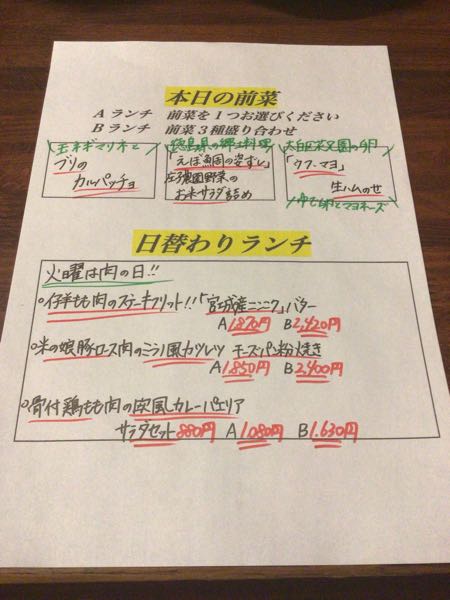 本日の前菜
Aランチ 前菜を1つお選びください
Bランチ 前菜3種盛り合わせ
玉ネギマリネと
ブリの
カルパッチョ
徳島県の郷土料理
「えぼ鯛の姿ずし」
庄子農園野菜の
お米サラダ詰め
「ウフ・マヨ」
生ハムのせ
ゆで卵とマヨネーズ
日替わりランチ
火曜は肉の日!!
○仔羊もも肉のステークフリット!!「宮城産ニンニク」バター
A1,870円 B2,420円
○米の娘豚ロース肉のミラノ風カツレツ チーズパン粉焼き
A1,850円 B2,400円
○骨付鶏もも肉の欧風カレーパエリア
サラダセット880円 A1,080円 B1,630円